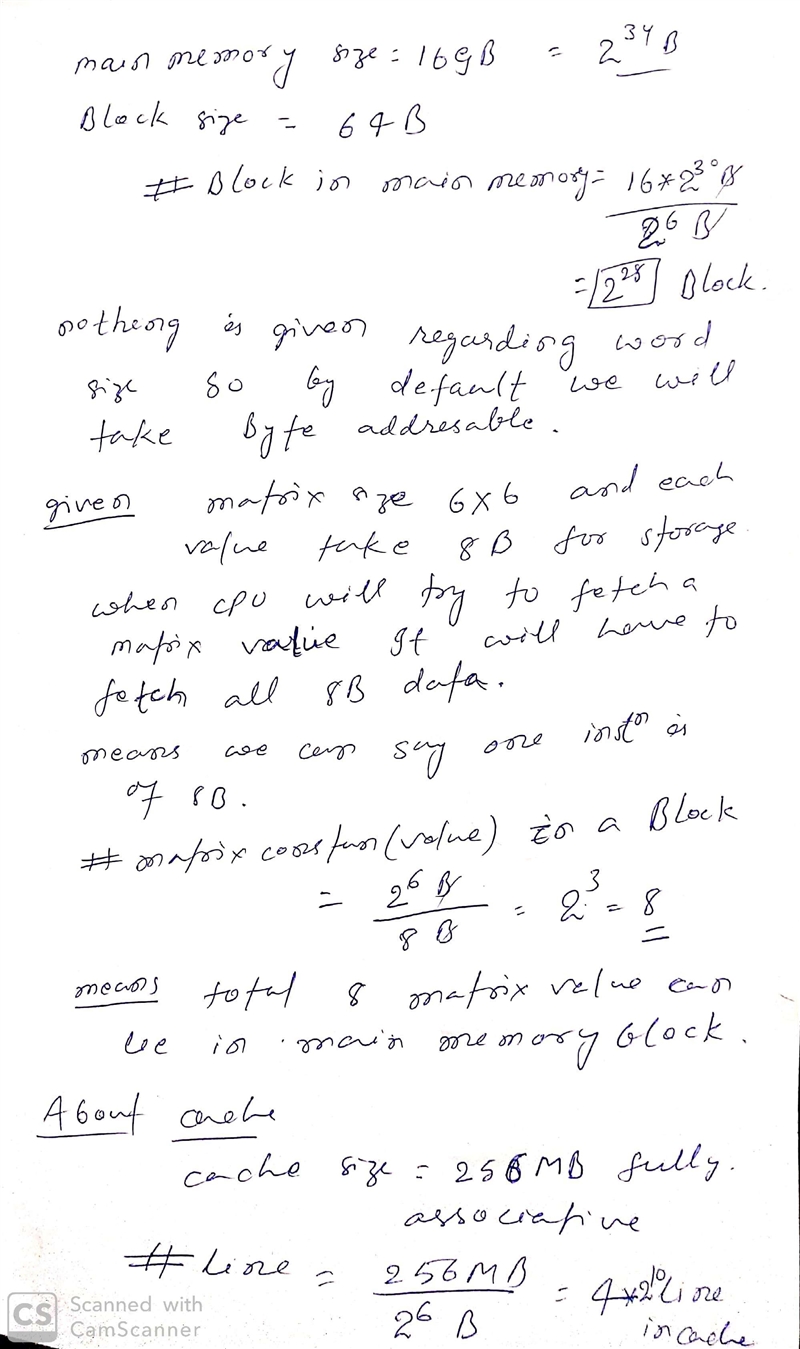 main memory size = 16GB = 2^34 B
Block size = 64B
# Block in main memory = 16*2^30 B / 2^6 B
= 2^28 Block.
nothing is given regarding word
size so by default we will
take Byte addresable.
given matrix size 6x6 and each
value take 8B for storage
when CPU will try to fetch a
matrix value It will have to
fetch all 8B data.
means we can say one instn is
of 8B.
# matrix constan (value) in a Block
= 2^6 B / 8 B = 2^3 = 8
means total 8 matrix value can
be in main memory block.
About cache
cache size = 256MB fully.
associative
# line = 256MB / 2^6 B = 4*2^10 line
in cache
CS Scanned with
CamScanner